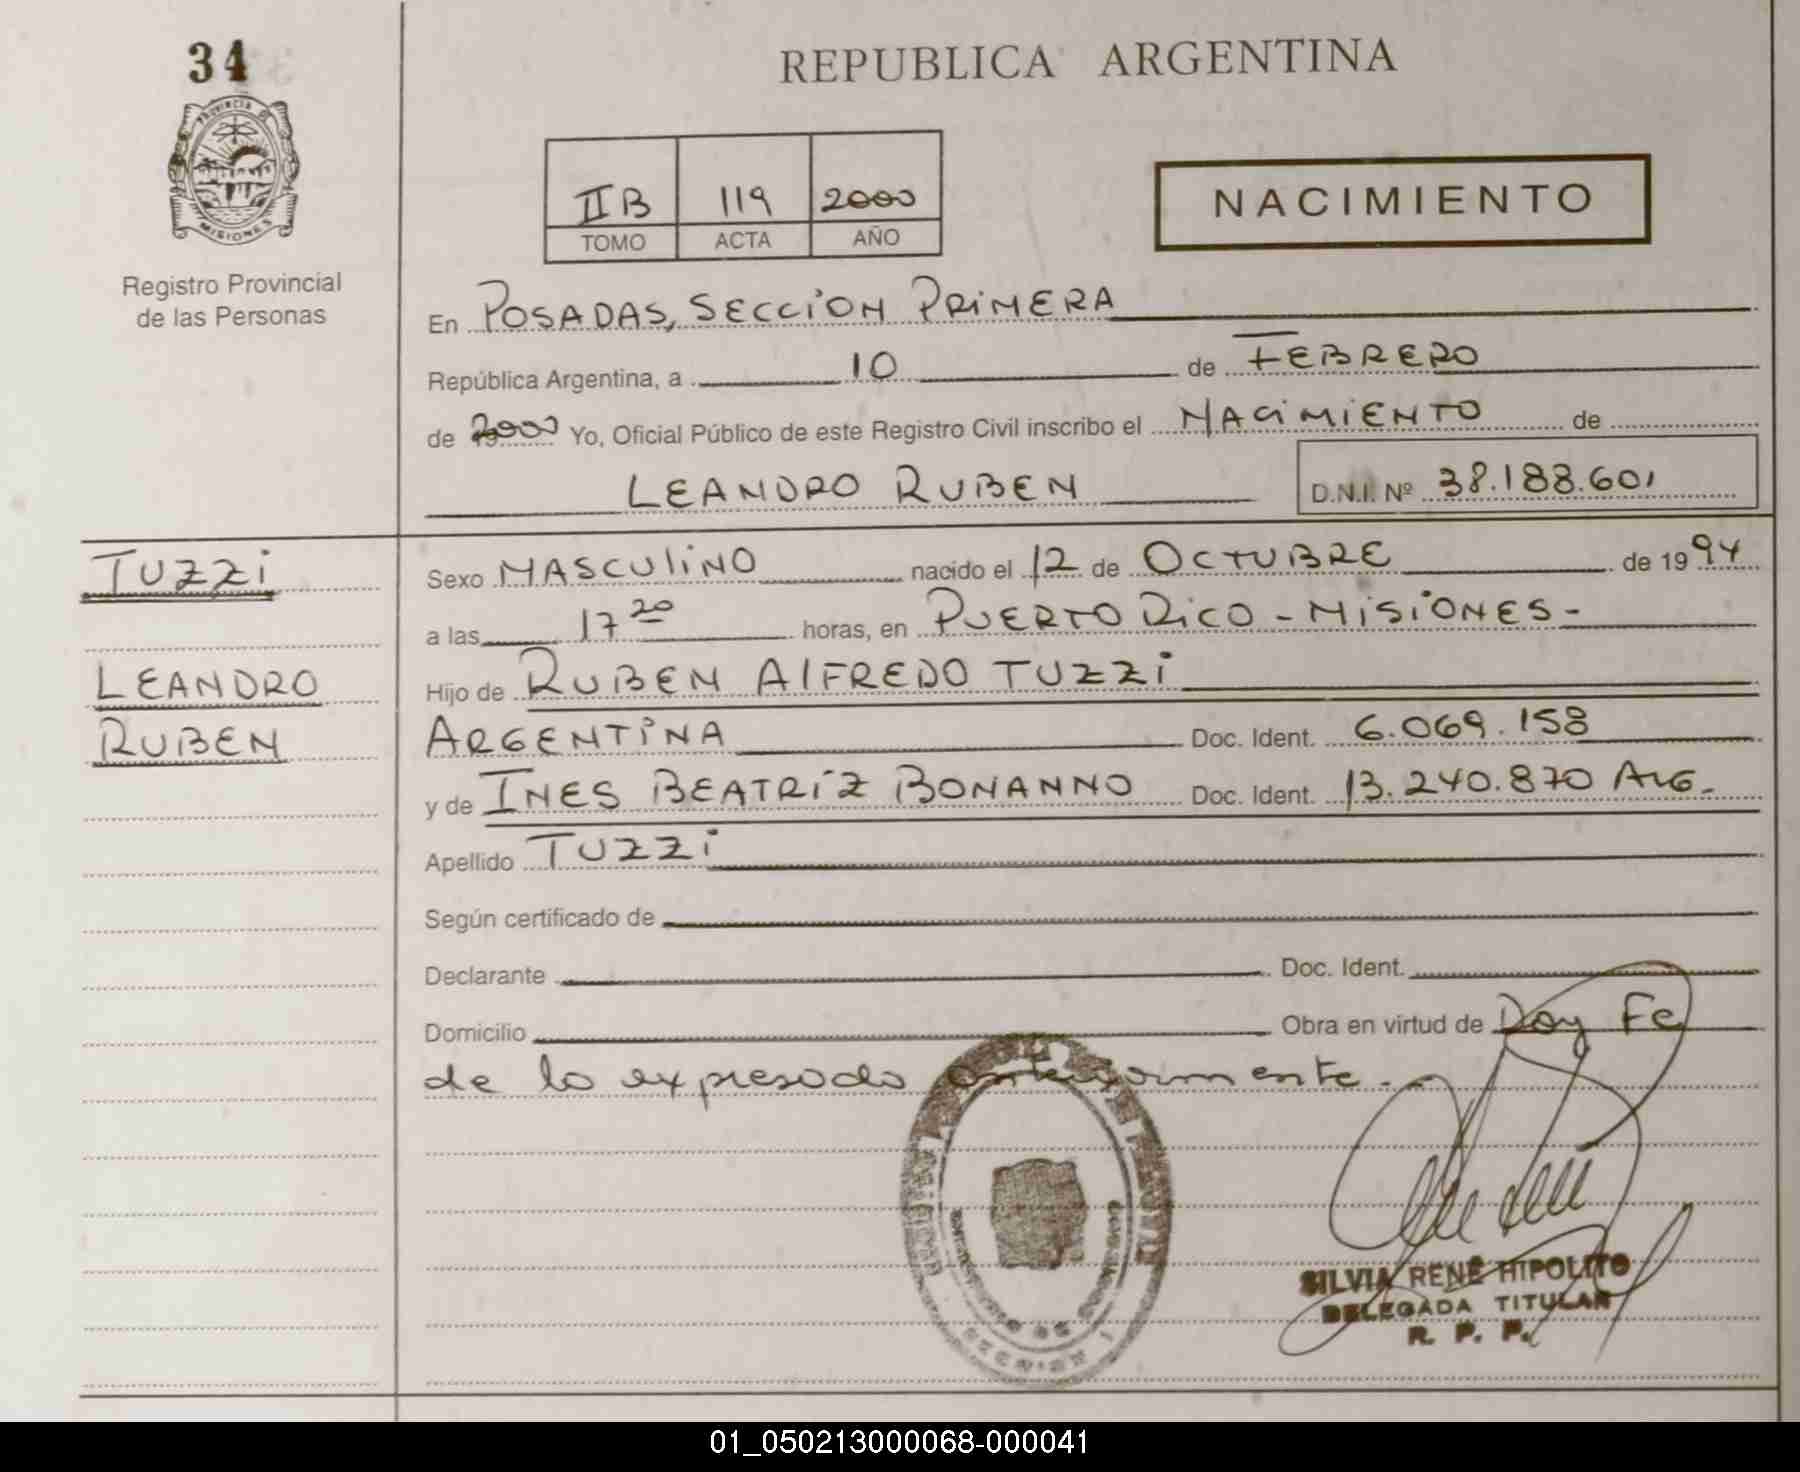 34
PROVINCIA DE
MISIONES
Registro Provincial
de las Personas
REPUBLICA ARGENTINA
II B 119 2000
TOMO ACTA AÑO
NACIMIENTO
En POSADAS, SECCION PRIMERA
República Argentina, a 10 de FEBRERO
de 2000 Yo, Oficial Público de este Registro Civil inscribo el NACIMIENTO de
LEANDRO RUBEN D.N.I. Nº 38.188.601
TUZZI
LEANDRO
RUBEN
Sexo MASCULINO nacido el 12 de OCTUBRE de 1994
a las 17 20 horas, en PUERTO RICO - MISIONES -
Hijo de RUBEN ALFREDO TUZZI
ARGENTINA Doc. Ident. 6.069.158
y de INES BEATRIZ BONANNO Doc. Ident. 13.240.870 ARG.
Apellido TUZZI
Según certificado de
Declarante Doc. Ident.
Domicilio Obra en virtud de Doy Fe
de lo expresado anteriormente.
SILVIA RENÉ HIPOLITO
DELEGADA TITULAR
R. P. P.
01_050213000068-000041